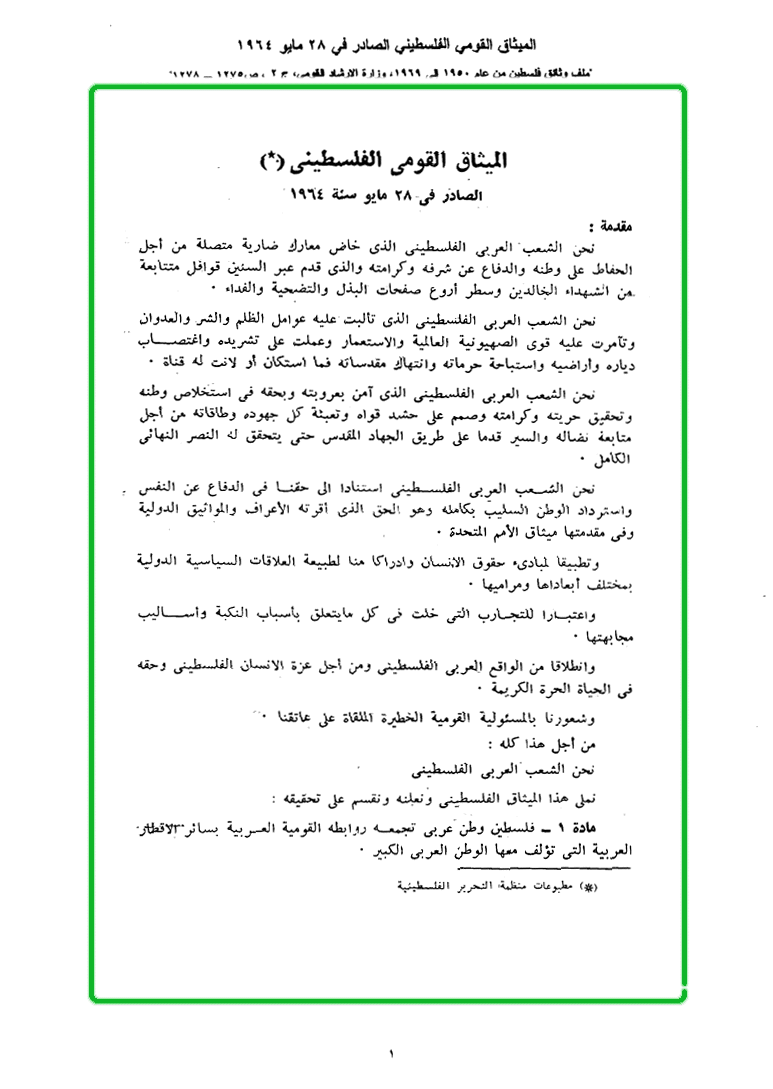 الميثاق القومي الفلسطيني الصادر في ٢٨ مايو ١٩٦٤
"ملف وثائق فلسطين من عام ١٩٥٠ الى ١٩٦٩، وزارة الارشاد القومي، ج ٢، ص ١٢٧٥ – ١٢٧٨"
الميثاق القومى الفلسطينى (*)
الصادر فى ٢٨ مايو سنة ١٩٦٤
مقدمة :
نحن الشعب العربى الفلسطينى الذى خاض معارك ضارية متصلة من أجل
الحفاظ على وطنه والدفاع عن شرفه وكرامته والذى قدم عبر السنين قوافل متتابعة
من الشهداء الخالدين وسطر أروع صفحات البذل والتضحية والفداء ٠
نحن الشعب العربى الفلسطينى الذى تألبت عليه عوامل الظلم والشر والعدوان
وتآمرت عليه قوى الصهيونية العالمية والاستعمار وعملت على تشريده واغتصــاب
دياره وأراضيه واستباحة حرماته وانتهاك مقدساته فما استكان أو لانت له قناة ٠
نحن الشعب العربى الفلسطينى الذى آمن بعروبته وبحقه فى استخلاص وطنه
وتحقيق حريته وكرامته وصمم على حشد قواه وتعبئة كل جهوده وطاقاته من أجل
متابعة نضاله والسير قدما على طريق الجهاد المقدس حتى يتحقق له النصر النهائى
الكامل ٠
نحن الشــعب العربى الفلســطينى استنادا الى حقنــا فى الدفاع عن النفس
واسترداد الوطن السليب بكامله وهو الحق الذى أقرته الأعراف والمواثيق الدولية
وفى مقدمتها ميثاق الأمم المتحدة ٠
وتطبيقا لمبادىء حقوق الانسان وادراكا منا لطبيعة العلاقات السياسية الدولية
بمختلف أبعاداها ومراميها ٠
واعتبــارا للتجــارب التى خلت فى كل مايتعلق بأسباب النكبة وأســاليب
مجابهتها ٠
وانطلاقا من الواقع العربى الفلسطينى ومن أجل عزة الانسان الفلسطينى وحقه
فى الحياة الحرة الكريمة ٠
وشعورنا بالمسئولية القومية الخطيرة الملقاة على عاتقنا ٠
من أجل هذا كله :
نحن الشعب العربى الفلسطينى
نملى هذا الميثاق الفلسطينى ونعلنه ونقسم على تحقيقه :
مادة ١ ــ فلسطين وطن عربى تجمعــه روابطه القومية العــربية بسائر الاقطار
العربية التى تؤلف معها الوطن العربى الكبير ٠
(*) مطبوعات منظمة التحرير الفلسطينية
١